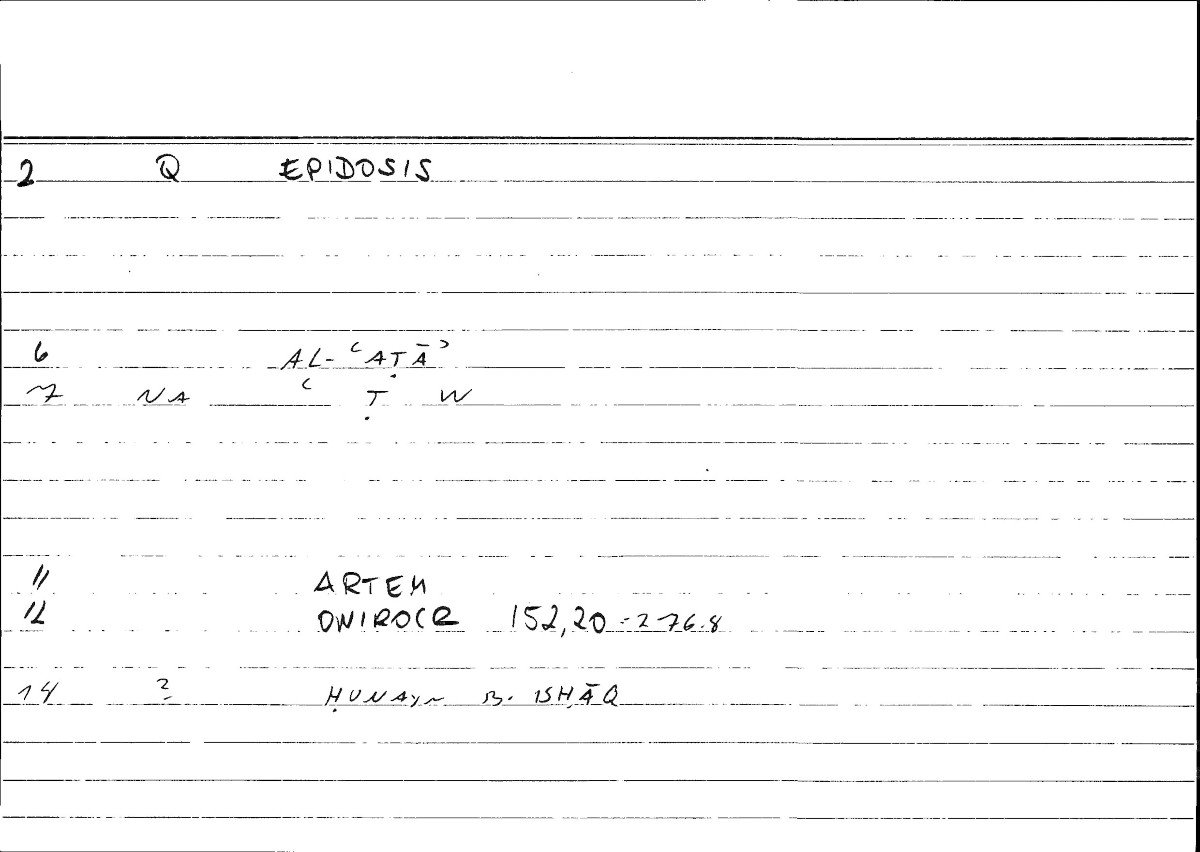 2 Q EPIDOSIS
6 AL-ʿAṬĀʾ
7 NA ʿ Ṭ W
11 ARTEM
12 ONIROCR 152,20-276.8
14 2 ḤUNAYN B. ISḤĀQ